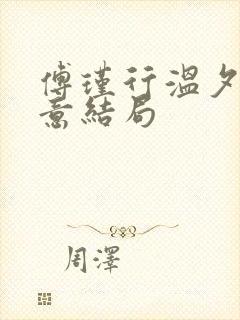 傅瑾行溫夕
意結局
周澤